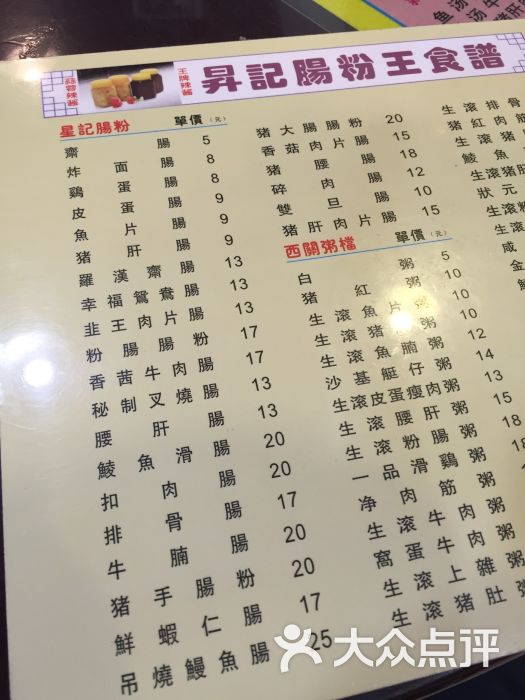 昇記腸粉王食譜
蒜蓉辣醬
王牌辣醬
星記腸粉 單價（元）
齋腸 5
炸面腸 8
鷄蛋腸 8
皮蛋腸 9
魚片腸 9
豬肝腸 9
羅漢齋腸 13
幸福鴛鴦腸 13
韭王肉片腸 13
粉腸腸粉 17
香茜牛肉腸 17
秘制叉燒腸 13
腰肝腸 13
鯪魚滑腸 20
扣肉腸 20
排骨腸 17
牛腩腸 20
豬手腸粉 20
鮮蝦仁腸 17
吊燒鰻魚腸 25
豬大腸腸粉 20
香菇肉片腸 15
豬腰腸 18
碎肉腸 12
雙旦腸 10
豬肝肉片腸 15
西關粥檔 單價（元）
白粥 5
豬紅粥 10
生滾魚片粥 10
生滾豬粥 10
生滾魚腩粥 12
沙基艇仔粥 14
生滾皮蛋瘦肉粥 13
生滾腰肝粥 15
生滾粉腸粥 18
一品滑鷄粥
净肉筋粥
生滾牛肉粥
窩蛋牛肉粥
生滾上雜粥
生滾豬肚粥
生滾排骨
豬紅肉筋
生滾豬
鯪魚
生滾豬肝
狀元
生滾
生滾
咸
金
大众点评